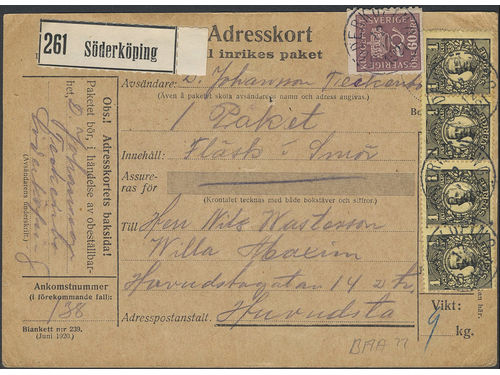 261 Söderköping
Adresskort
inrikes paket
SVERIGE
60
Avsändare: D. Johansson
(Även å paketet skola avsändarens namn och adress angivas.)
1 Paket
Innehåll: Fläsk i Smör
Assure-
ras för
(Krontalet tecknas med både bokstäver och siffror.)
Till Herr Nils Wasterson
Willa Maxim
Huvudstagatan 14 2 tr.
Adresspostanstalt. Huvudsta
Vikt:
9 kg.
BHA 77
Obs.! Adresskortets baksida!
Paketet bör, i händelse av obeställbar-
het,
D Johansson
Söderköping
(Avsändarens underskrift.)
Ankomstnummer
(i förekommande fall):
138
Blankett n:r 239.
(Juni 1920.)
1
1
1
1